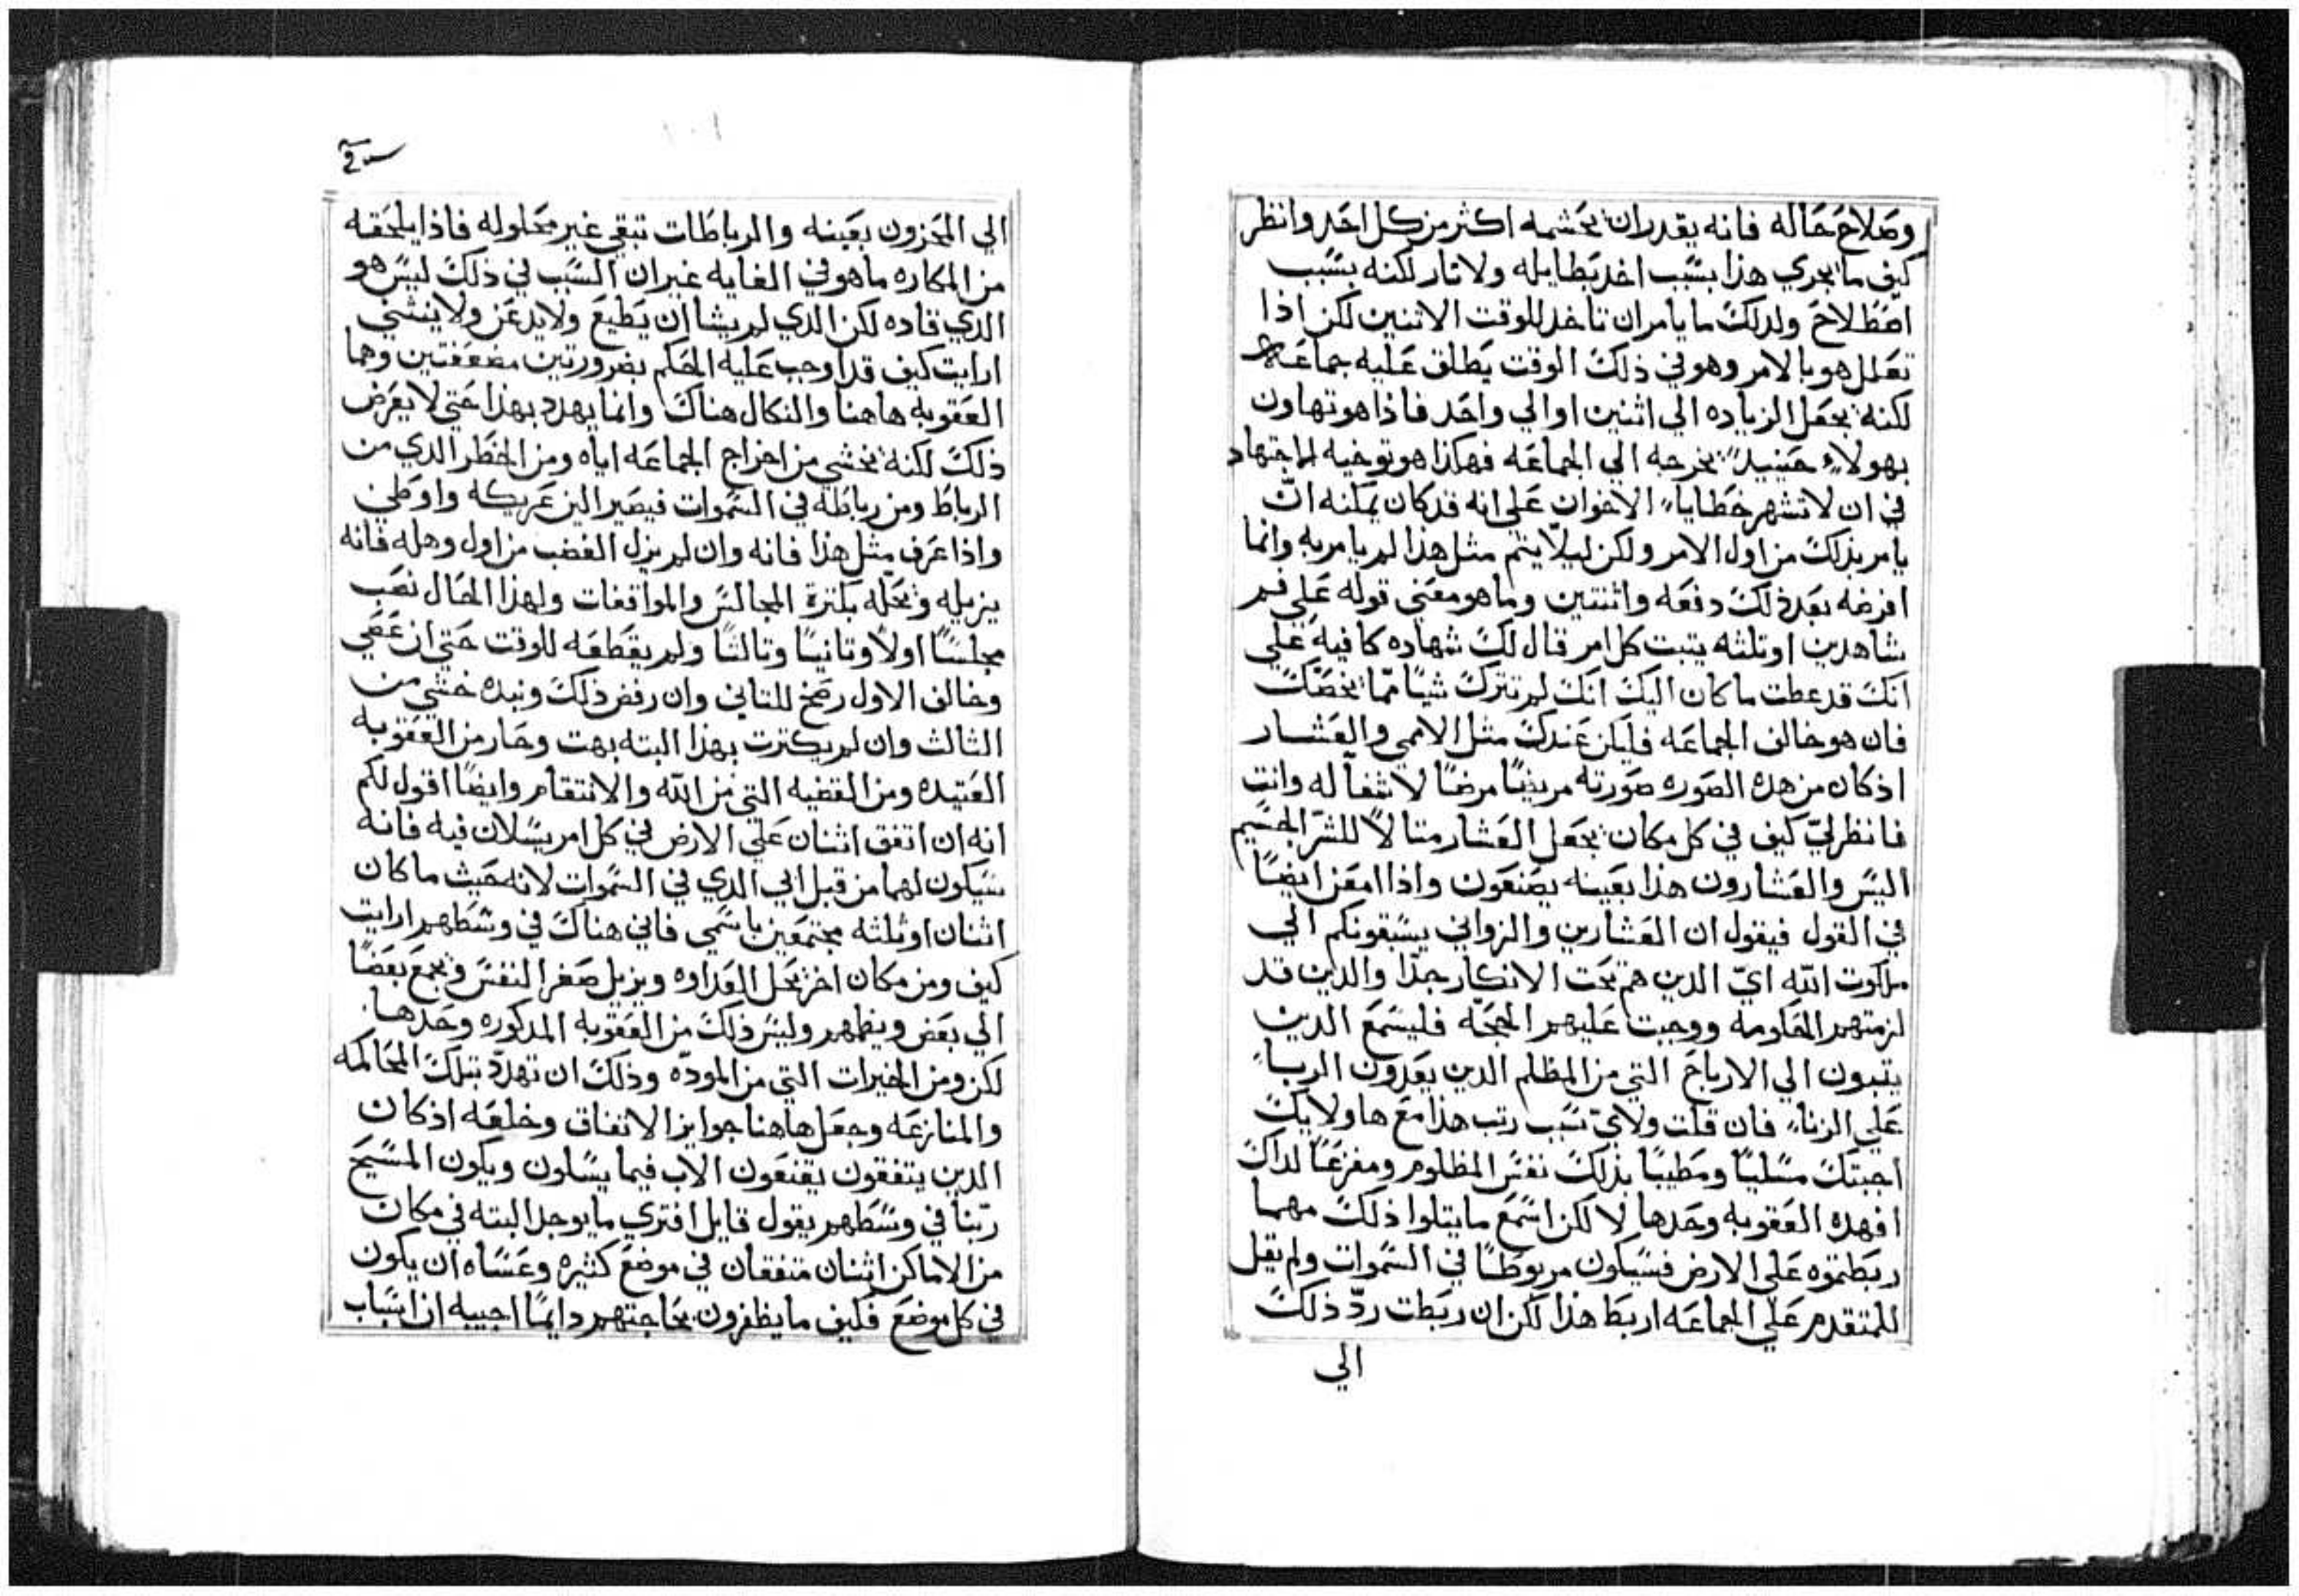 وصَلاحَ حَاله فانه يقدر ان يحَشمه اكثر من كل احَد وانظر
كيف ما يجري هذا بسَبب اخد بَطايله ولا تار لكنه بسَبب
اصَطلاحَ ولدلكَ ما يامر ان تاخد للوقت الاتنين لكن اذا
تعَلل هو بالامر وهو في ذلكَ الوقت يَطلق عَليه جماعَه
لكنه يجعَل الزياده الي اثنين او الي واحَد فاذا هو تهاون
بهولاءِ حَينيدً يخرجه الي الجماعَه فهكذا هو توخيه الاجتهاد
في ان لا تشهر خَطاياء الاخوان عَلي انه قد كان يمكنه انّ
يامر بذلكَ من اول الامر ولكن ليلّا يتم مثل هذا لم يامر به وانما
افرضه بعَد ذلكَ دفعَه واثنتين وما هو معَني قوله عَلي فم
شاهدين او تلثه يتبت كل امر قال لكَ شهاده كافيه عَلي
انكَ قد عطت ما كان اليكَ انكَ لم تتركَ شيًا ممّا يخصَّكَ
فان هو خالف الجماعَه فليكن عَندكَ مثل الاممي والعَشار
اذ كان من هده الصَوره صَورته مريضًا مرضًا لا شفآ له وانت
فانظر ليّ كيف في كل مكان يجعَل العَشار متالًا للشرّ الجسَيم
اليسَ والعَشارون هذا بعَينه يصَنعَون واذا امعَن ايضًا
في القول فيقول ان العَشارين والزواني يسَبقونكم الي
ملكوت الله ايّ الدين هم تحَت الانكار جدّا والدين قد
لزمتهم المحَاومه ووجبت عَليهم الحجَّه فليسَمعَ الدين
يتبون الي الارباحَ التي من المظلم الدين يعَدون الربا
عَلي الزناء فان قلت ولايّ سَبب رتب هذا معَ هاولايكَ
اجبتكَ مسَليًا ومَطيبًا بذلكَ نفسَ المظلوم ومفزعًَا لداكَ
افهده العَقوبه وحَدها لا لكن اسَمعَ ما يتلوا ذلكَ مهما
ربَطتموه عَلي الارض فسَيكون مربوَطًا في السَموات ولم يقل
للمتقدم عَلي الجماعَه اربَط هذا لكن ان ربَطت ردّ ذلكَ
الي
الي المحَزون بعَينه والرباطَات تبقي غير محَلوله فاذا يلحَقه
من المكاره ما هو في الغايه غير ان السَبب في ذلكَ ليسَ هو
الدي قاده لكن الدي لم يشا ان يَطيعَ ولا يدعَن ولا ينثني
ارايت كيف قد اوجب عَليه الحَكم بضرورتين مضعَفتين وهما
العَقوبه هاهنا والنكال هناكَ وانما يهدد بهذا حَتي لا يعَرض
ذلكَ لكنه يخشي من اخراج الجماعَه اياه ومن الخَطر الدي من
الرباطَ ومن رباطَه في السَموات فيصَير الين عَريكه واوَطي
واذا عَرف مثل هذا فانه وان لم يزل الغضب من اول وهله فانه
يزيله ويحَلّه بكترة المجالسَ والمواقفات ولهذا الحَال نصَب
مجلسًَا اولًا وتانيًا وتالتًا ولم يقَطعَه للوقت حَتي ان عَصَي
وخالف الاول رضخ للتاني وان رفض ذلكَ ونبده خشي من
الثالث وان لم يكترت بهذا البته بهت وحَار من العَقوبه
العَتيده ومن القضيه التي من الله والانتقام وايضًا اقول لكم
انه ان اتفق اثنان عَلي الارض في كل امر يسَلان فيه فانه
سَيكون لهما من قبل ابي الدي في السَموات لانه حَيث ما كان
اثنان او ثلثه مجتمعَين باسَمي فاني هناكَ في وسَطهم ارايت
كيف ومن مكان اخر يحَل العَداوه ويزيل صَغر النفسَ ويجمعَ بعَضًا
الي بعَض وينظمهم وليسَ ذلكَ من العَقوبه المدكوره وحَدها
لكن ومن الخيرات التي من المودّه وذلكَ ان تهدّد بتلكَ المحَاكمه
والمنازعَه وجعَل هاهنا جوايز الاتفاق وخلعَه اذ كان
الدين يتفقون يقنعَون الاب فيما يسَلون ويكون المسَيحَ
ربّنا في وسَطهم يقول قايل افتري ما يوجد البته في مكان
من الاماكن اثنان متفقان في موضعَ كثيره وعَسَاه ان يكون
في كل موضعَ فكيف ما يظفرون بحَاجتهم دايمًا اجيبه ان اسَباب